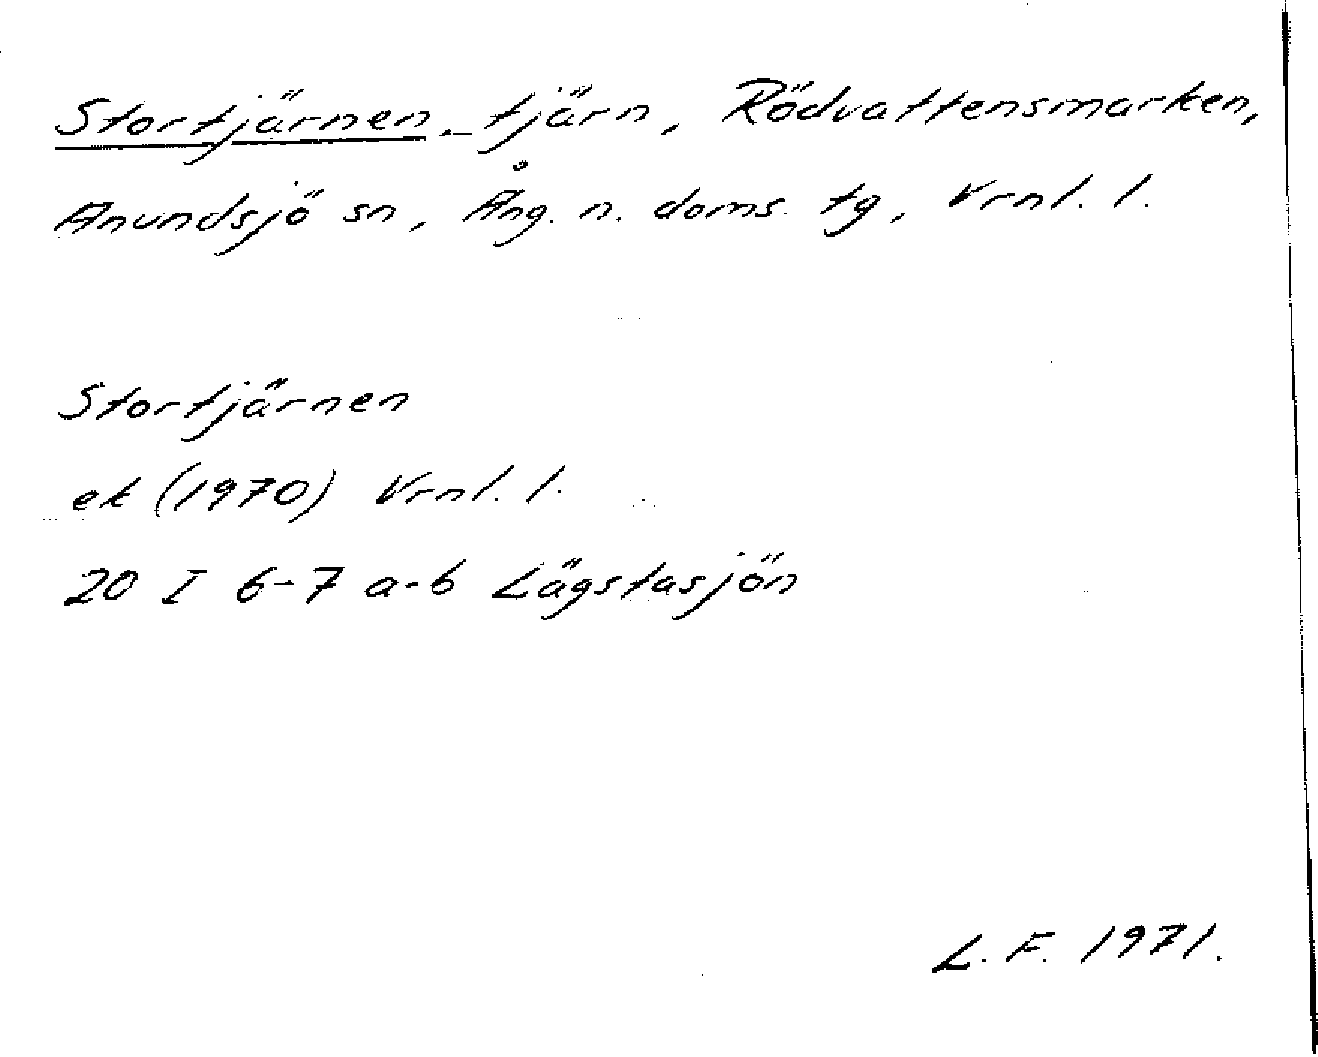 Stortjärnen, tjärn, Rödvattensmarken,
Anundsjö sn, Ång. n. doms. tg, Vrnl. l.
Stortjärnen
ek (1970) Vrnl. l.
20 I 6-7 a-b Lägstasjön
L. F. 1971.